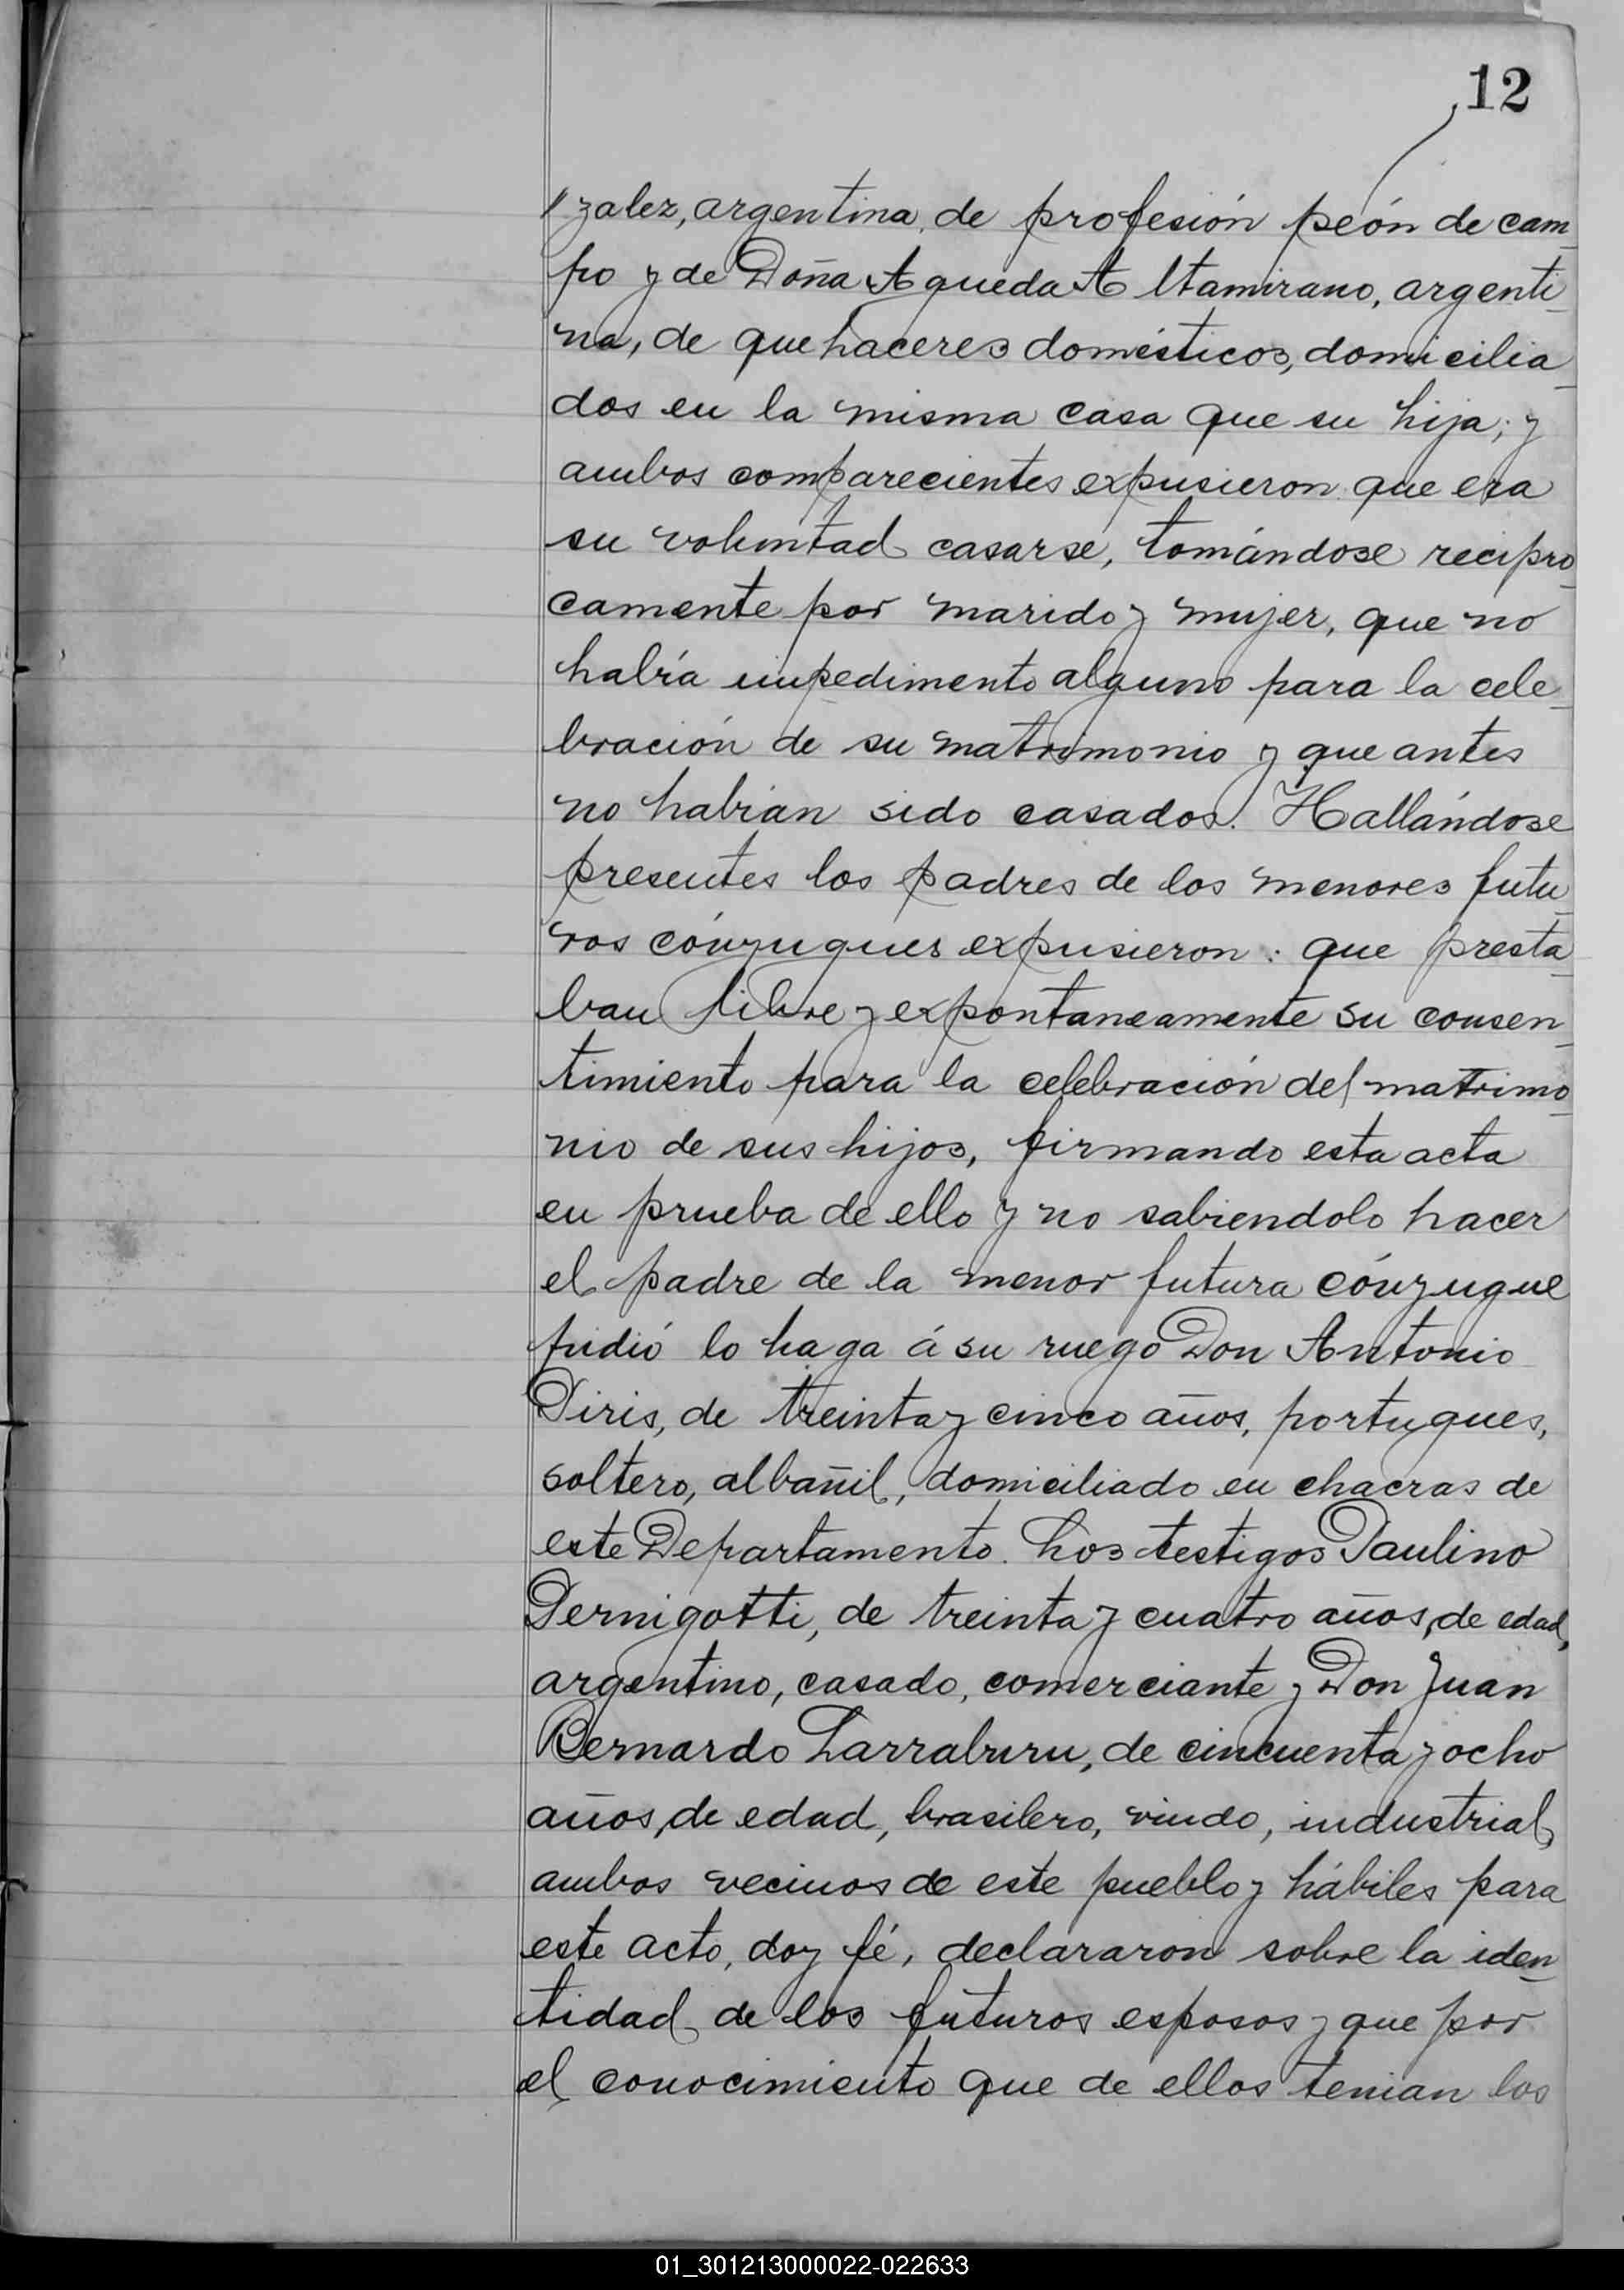 12
"zalez, argentina, de profesión peón de cam_
po y de Doña Agueda Altamirano, argenti_
na, de que haceres domésticos, domicilia_
dos en la misma casa que su hija; y
ambos comparecientes expusieron que era
su voluntad casarse, tomándose recipro_
camente por marido y mujer, que no
había impedimento alguno para la cele_
bración de su matrimonio y que antes
no habían sido casados. Hallándose
presentes los padres de los menores futu_
ros cónyugues expusieron: que presta_
ban libre y expontaneamente su consen_
timiento para la celebración del matrimo_
nio de sus hijos, firmando esta acta
en prueba de ello y no sabiendolo hacer
el padre de la menor futura cónyugue
pidió lo haga á su ruego Don Antonio
Piris, de treinta y cinco años, portugues,
soltero, albañil, domiciliado en chacras de
este Departamento. Los testigos Paulino
Pernigotti, de treinta y cuatro años, de edad,
argentino, casado, comerciante y Don Juan
Bernardo Larraburu, de cincuenta y ocho
años, de edad, brasilero, viudo, industrial,
ambos vecinos de este pueblo y hábiles para
este acto, doy fé, declararon sobre la iden_
tidad de los futuros esposos y que por
el conocimiento que de ellos tenian los
01_301213000022-022633